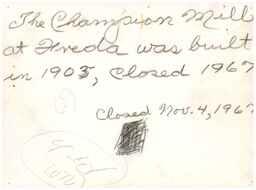 The Champion Mill
at Freda was built
in 1903, Closed 1967
Closed Nov. 4, 1967